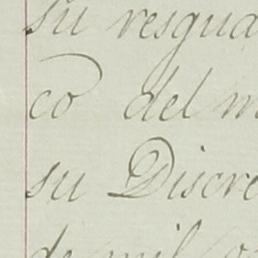 su resgua
co del m
su Discre
de mil oc